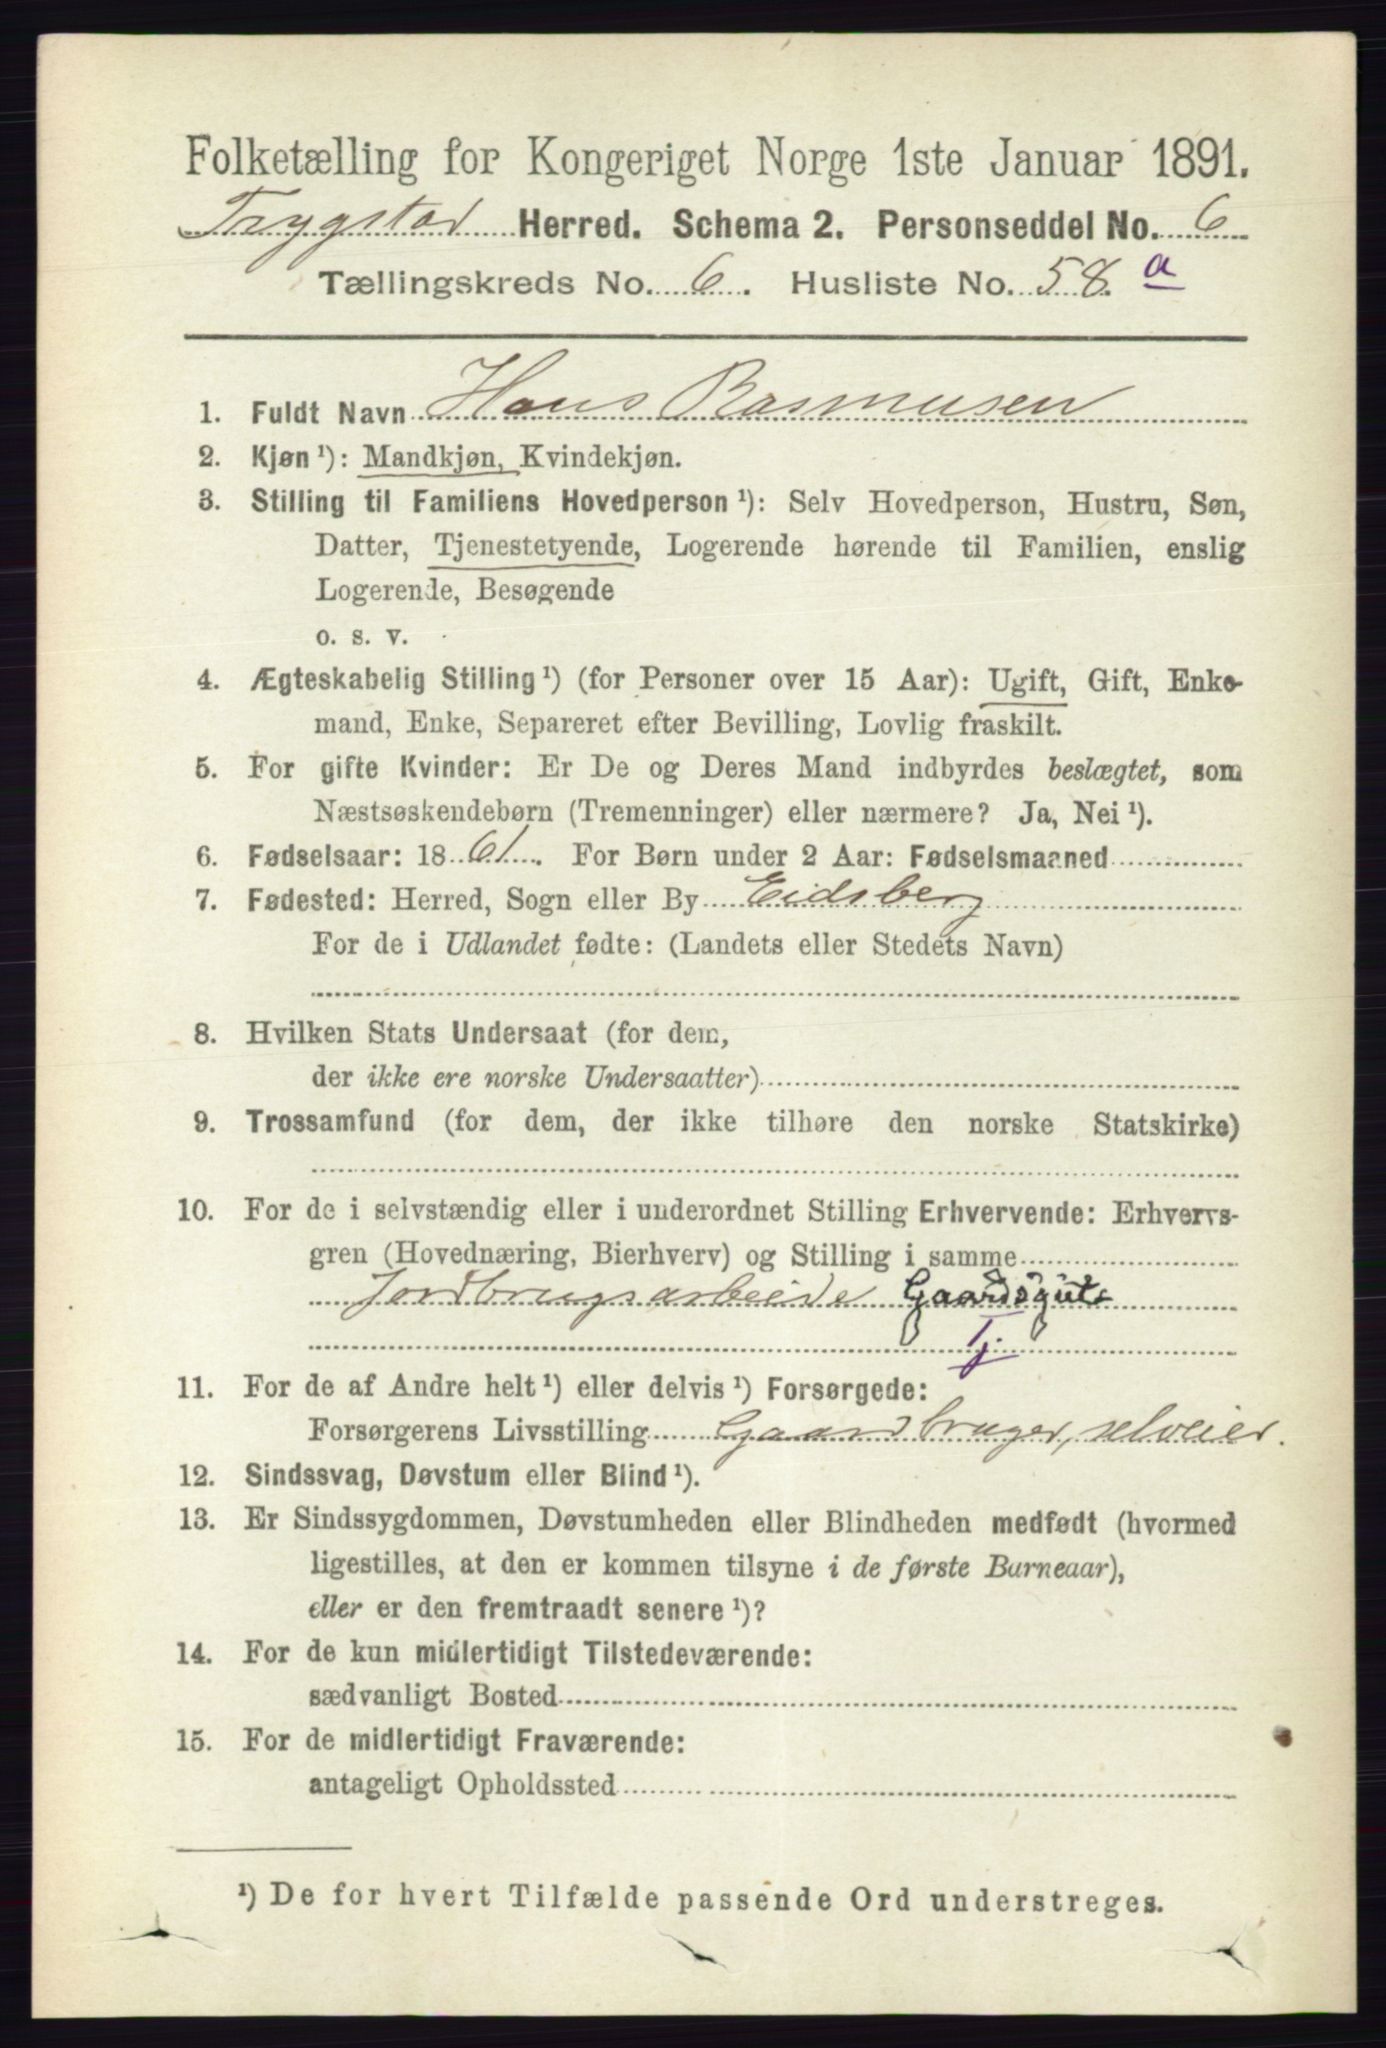 Folketælling for Kongeriget Norge 1ste Januar 1891.
Trygstad Herred. Schema 2. Personseddel No. 6
Tællingskreds No. 6. Husliste No. 58. a
1. Fuldt Navn Hans Rasmusen
2. Kjøn ¹): Mandkjøn, Kvindekjøn.
3. Stilling til Familiens Hovedperson ¹): Selv Hovedperson, Hustru, Søn,
Datter, Tjenestetyende, Logerende hørende til Familien, enslig
Logerende, Besøgende
o. s. v.
4. Ægteskabelig Stilling ¹) (for Personer over 15 Aar): Ugift, Gift, Enke-
mand, Enke, Separeret efter Bevilling, Lovlig fraskilt.
5. For gifte Kvinder: Er De og Deres Mand indbyrdes beslægtet, som
Næstsøskendebørn (Tremenninger) eller nærmere? Ja, Nei ¹).
6. Fødselsaar: 1861. For Børn under 2 Aar: Fødselsmaaned
7. Fødested: Herred, Sogn eller By Eidsberg
For de i Udlandet fødte: (Landets eller Stedets Navn)
8. Hvilken Stats Undersaat (for dem,
der ikke ere norske Undersaatter)
9. Trossamfund (for dem, der ikke tilhøre den norske Statskirke)
10. For de i selvstændig eller i underordnet Stilling Erhvervende: Erhvervs-
gren (Hovednæring, Bierhverv) og Stilling i samme
Jordbrugsarbeide Gaardsgut
Tj.
11. For de af Andre helt ¹) eller delvis ¹) Forsørgede:
Forsørgerens Livsstilling Gaardbruger, selveier.
12. Sindssvag, Døvstum eller Blind ¹).
13. Er Sindssygdommen, Døvstumheden eller Blindheden medfødt (hvormed
ligestilles, at den er kommen tilsyne i de første Barneaar),
eller er den fremtraadt senere ¹)?
14. For de kun midlertidigt Tilstedeværende:
sædvanligt Bosted
15. For de midlertidigt Fraværende:
antageligt Opholdssted
¹) De for hvert Tilfælde passende Ord understreges.